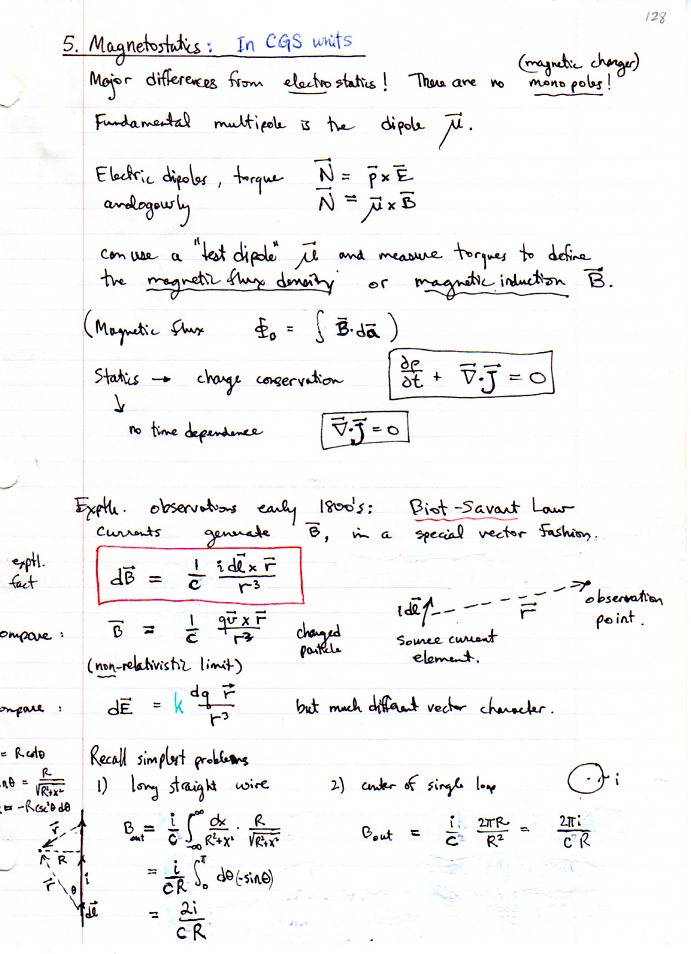 128
5. Magnetostatics: In CGS units
(magnetic charges)
Major differences from electrostatics! There are no monopoles!
Fundamental multipole is the dipole μ⃗.
Electric dipoles, torque N⃗ = p⃗ x E⃗
analogously N⃗ = μ⃗ x B⃗
can use a "test dipole" μ⃗ and measure torques to define
the magnetic flux density or magnetic induction B⃗.
(Magnetic flux Φ₀ = ∫ B⃗·da⃗)
Statics → charge conservation ∂ρ/∂t + ∇⃗·J⃗ = 0
↓
no time dependence ∇⃗·J⃗ = 0
Exptl. observations early 1800's: Biot-Savart Law
Currents generate B⃗, in a special vector fashion.
exptl. fact dB⃗ = 1/c i dl⃗ x r⃗ / r³
i dl⃗ r⃗ observation point.
Source current element.
ompare: B⃗ = 1/c qv⃗ x r⃗ / r³ charged particle
(non-relativistic limit)
ompare: dE⃗ = k dq r⃗ / r³ but much different vector character.
= R cotθ
nθ = R/√(R²+x²)
= -R csc²θ dθ
Recall simplest problems
1) long straight wire 2) center of single loop i
B_out = i/c ∫_{-∞}^{∞} dx/(R²+x²) · R/√(R²+x²) B_out = i/c 2πR/R² = 2πi/cR
= i/cR ∫₀^π dθ(-sinθ)
= 2i/cR
r⃗ R r⃗ θ i dl⃗